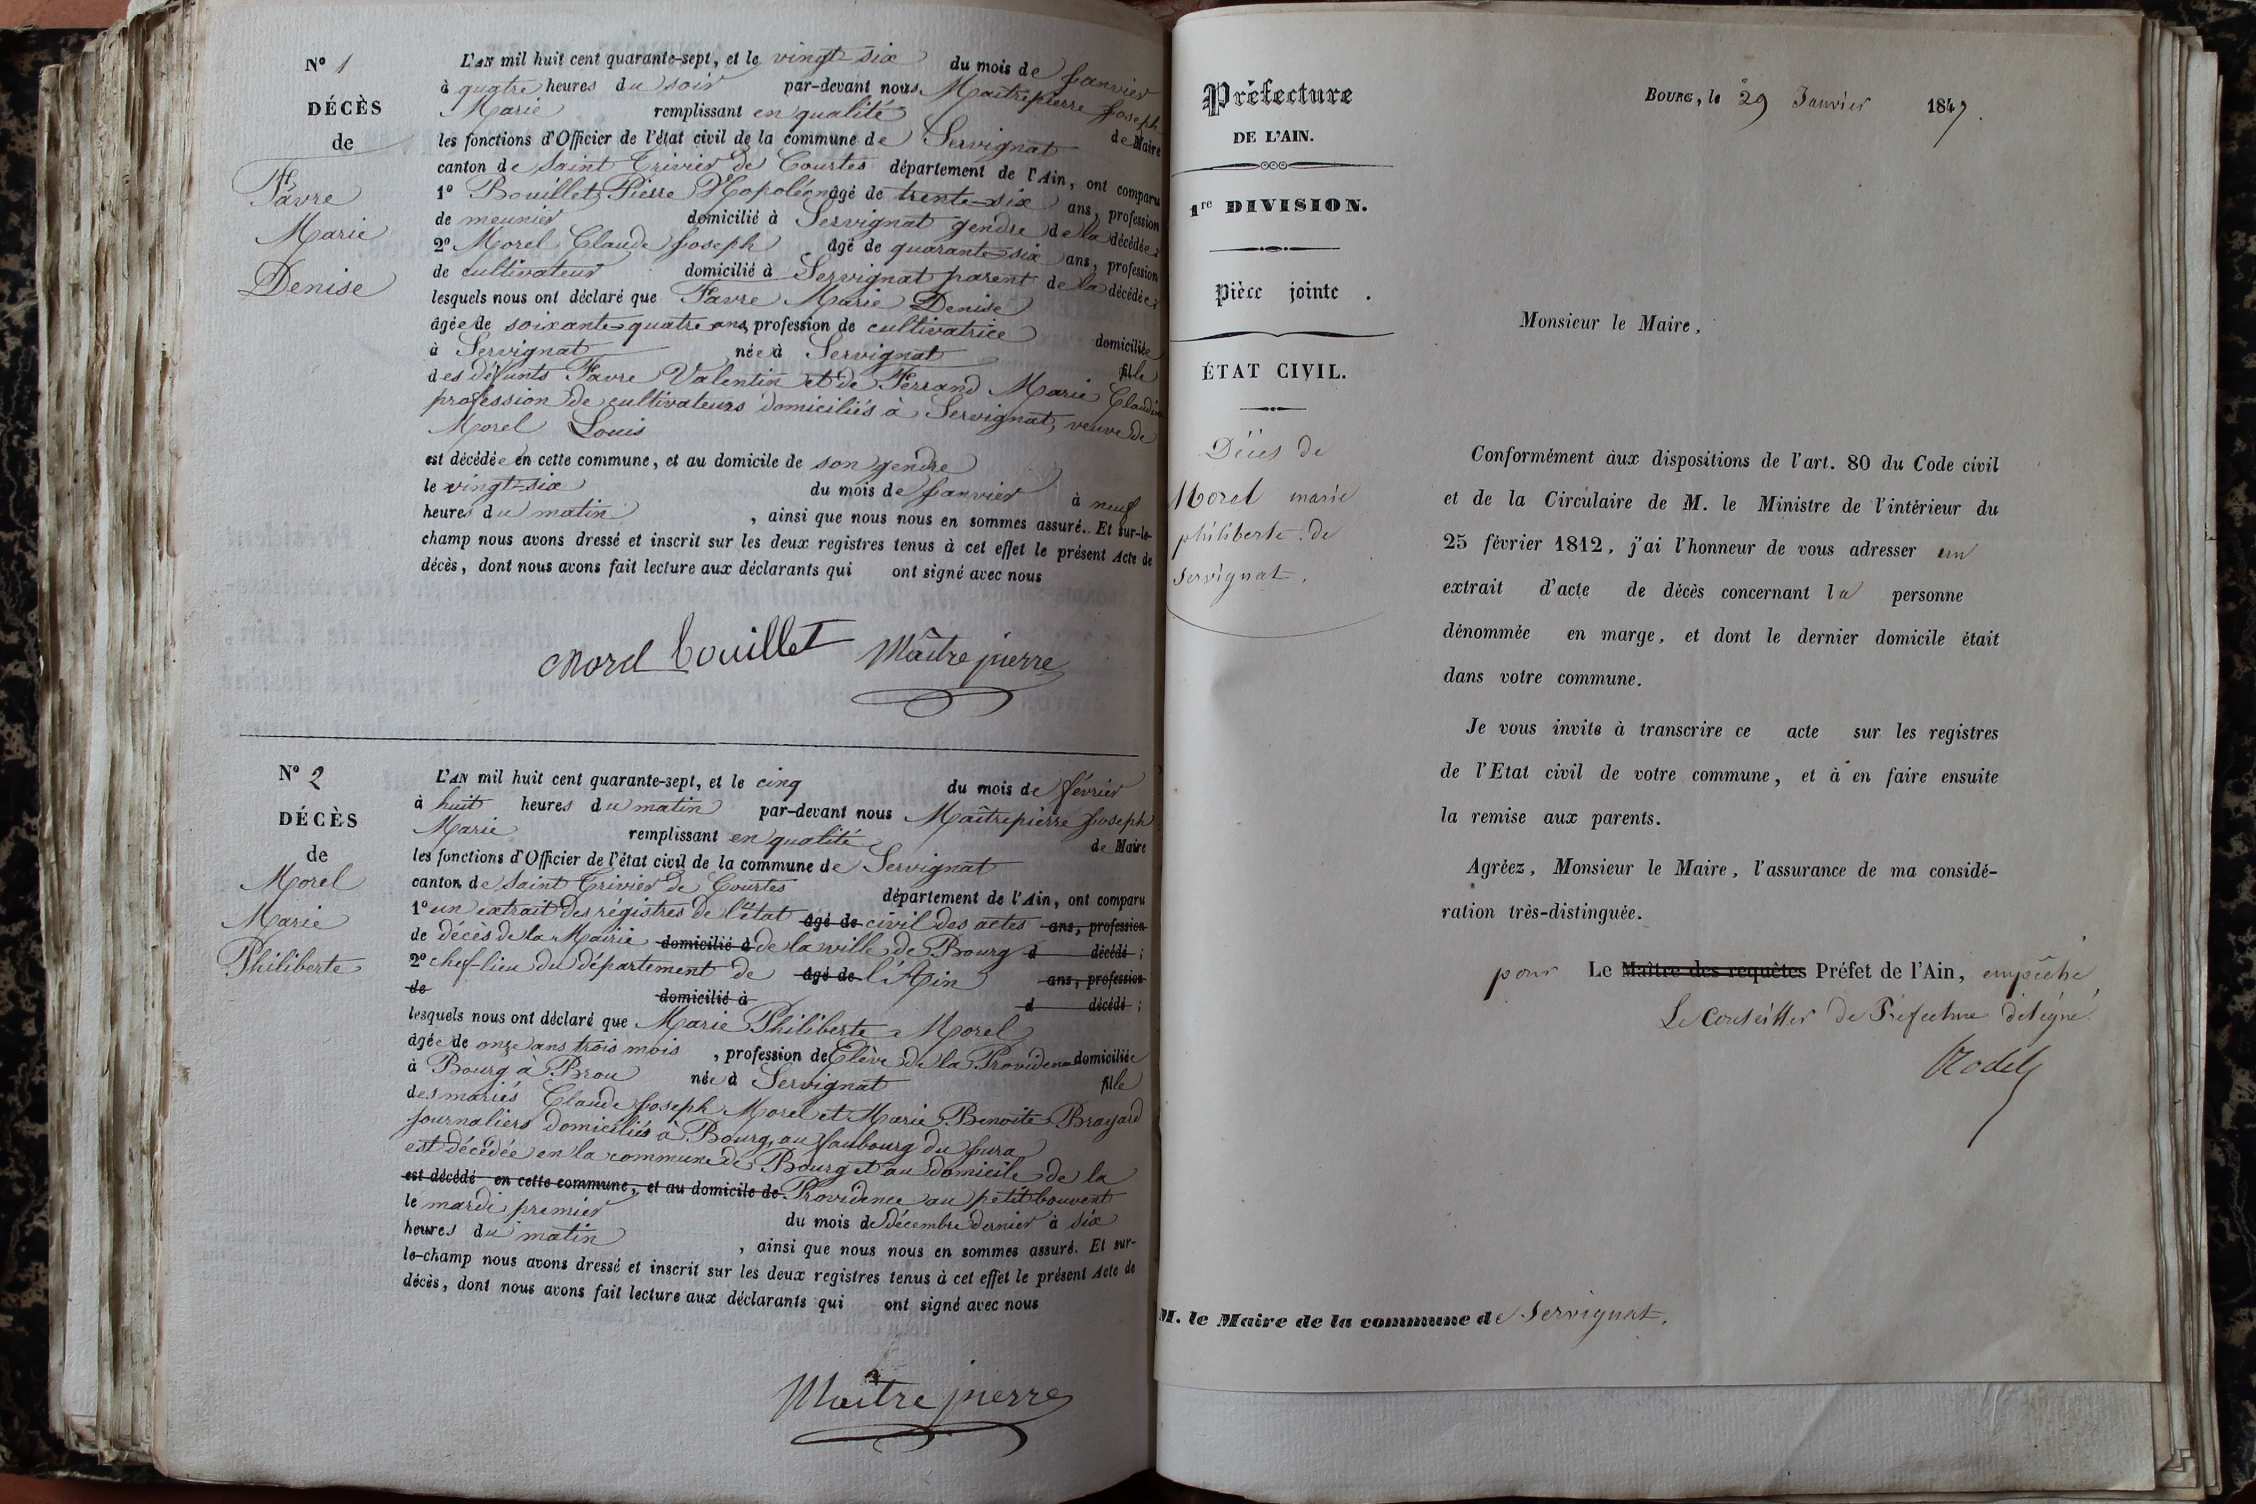 N° 1
DÉCÈS
de
Favre
Marie
Denise
L'AN mil huit cent quarante-sept, et le vingt-six du mois de Janvier
à quatre heures du soir par-devant nous Maîtrepierre Joseph
Marie remplissant en qualité de Maire
les fonctions d'Officier de l'état civil de la commune de Servignat
canton de Saint Trivier de Courtes département de l'Ain, ont comparu
1° Bouillet Pierre Napoléon âgé de trente-six ans, profession
de meunier domicilié à Servignat gendre de la décédée
2° Morel Claude Joseph âgé de quarante-six ans, profession
de cultivateur domicilié à Servignat parent de la décédée
lesquels nous ont déclaré que Favre Marie Denise
âgée de soixante-quatre ans, profession de cultivatrice domiciliée
à Servignat née à Servignat fille
des défunts Favre Valentin et de Ferrand Marie Claudine
profession de cultivateurs domiciliés à Servignat, veuve de
Morel Louis
est décédée en cette commune, et au domicile de son gendre
le vingt-six du mois de Janvier à neuf
heures du matin, ainsi que nous nous en sommes assuré. Et sur-le-
champ nous avons dressé et inscrit sur les deux registres tenus à cet effet le présent Acte de
décès, dont nous avons fait lecture aux déclarants qui ont signé avec nous
Morel Bouillet Maître pierre
N° 2
DÉCÈS
de
Morel
Marie
Philiberte
L'AN mil huit cent quarante-sept, et le cinq du mois de février
à huit heures du matin par-devant nous Maîtrepierre Joseph
Marie remplissant en qualité de Maire
les fonctions d'Officier de l'état civil de la commune de Servignat
canton de Saint Trivier de Courtes département de l'Ain, ont comparu
1° un extrait des régistres de l'état âgé de civil des actes ans, profession
de décès de la Mairie domicilié à de la ville de Bourg d décédé ;
2° chef-lieu du département de âgé de l'Ain ans, profession
de domicilié à d décédé ;
lesquels nous ont déclaré que Marie Philiberte Morel
âgée de onze ans trois mois, profession de Elève de la Providence domiciliée
à Bourg à Brou née à Servignat fille
des mariés Claude Joseph Morel et Marie Benoite Brayard
journaliers domiciliés à Bourg, au faubourg du Jura
est décédée en la commune de Bourg et au domicile de la
est décédé en cette commune, et au domicile de Providence au petit bouvent
le mardi premier du mois de décembre dernier à six
heures du matin, ainsi que nous nous en sommes assuré. Et sur-
le-champ nous avons dressé et inscrit sur les deux registres tenus à cet effet le présent Acte de
décès, dont nous avons fait lecture aux déclarants qui ont signé avec nous
Maître pierre
Préfecture
DE L'AIN.
1re DIVISION.
Pièce jointe.
ÉTAT CIVIL.
Décès de
Morel marie
philiberte de
Servignat.
BOURG, le 29 Janvier 1847.
Monsieur le Maire,
Conformément aux dispositions de l'art. 80 du Code civil
et de la Circulaire de M. le Ministre de l'intérieur du
25 février 1812, j'ai l'honneur de vous adresser un
extrait d'acte de décès concernant la personne
dénommée en marge, et dont le dernier domicile était
dans votre commune.
Je vous invite à transcrire ce acte sur les registres
de l'Etat civil de votre commune, et à en faire ensuite
la remise aux parents.
Agréez, Monsieur le Maire, l'assurance de ma considé-
ration très-distinguée.
pour Le Maître des requêtes Préfet de l'Ain, empêché
Le Conseiller de Préfecture délégué.
M. le Maire de la commune de Servignat.